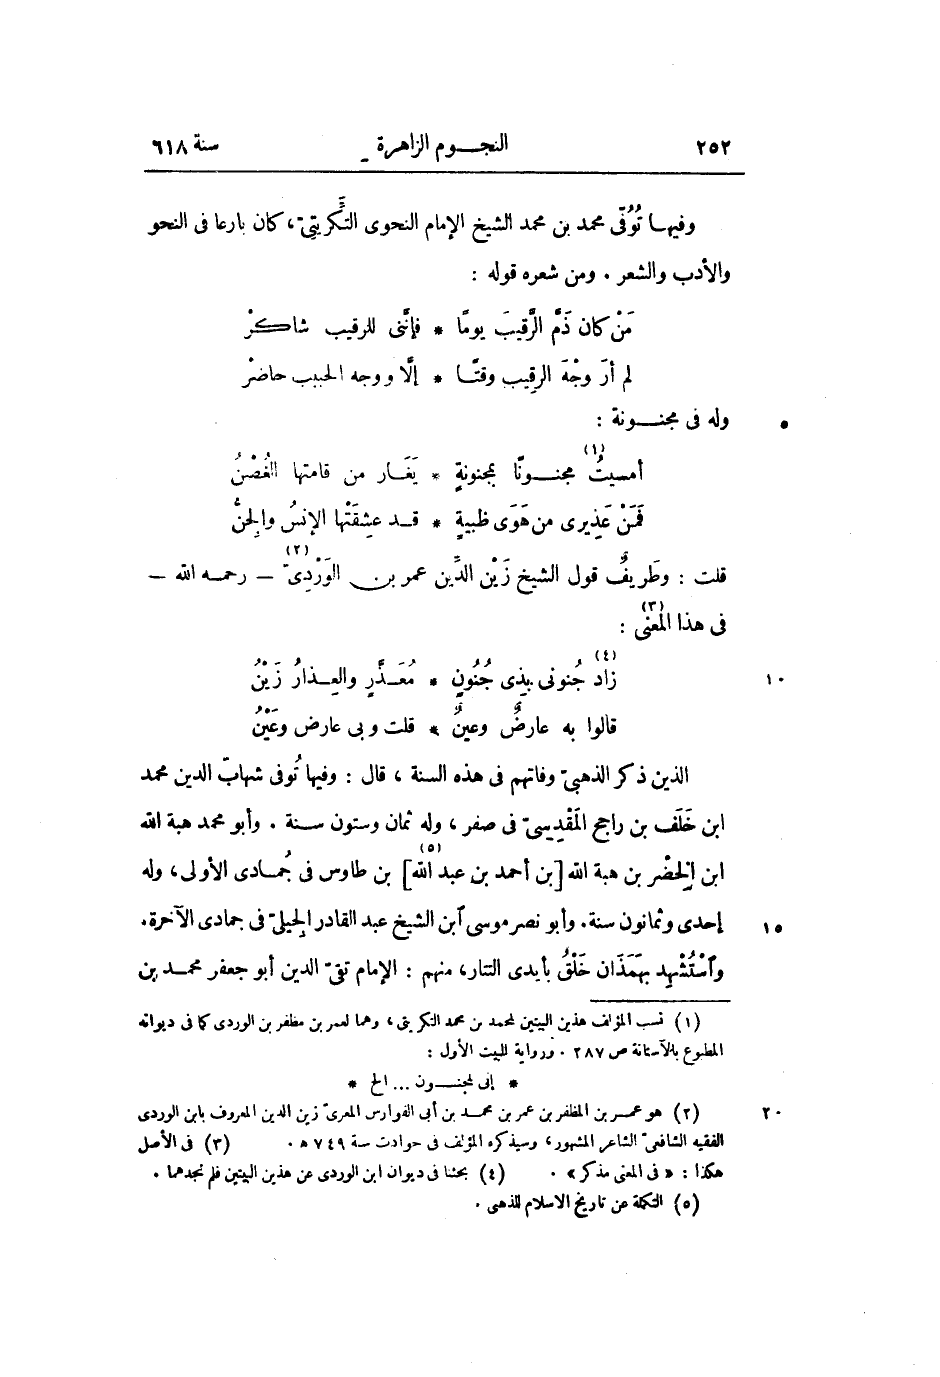 ٢٥٢ النجوم الزاهرة سنة ٦١٨
وفيها تُوُفّى محمد بن محمد الشيخ الإمام النحوى التَّكريتىّ، كان بارعا فى النحو
والأدب والشعر . ومن شعره قوله :
مَنْ كان ذَمَّ الرَّقيبَ يومًا * فإنَّنى للرقيب شاكرْ
لم أرَ وجْهَ الرقيب وقتًا * إلَّا ووجه الحبيب حاضرْ
وله فى مجنونة : ٥
أمسيتُ (١) مجنونًا بمجنونةٍ * يَغَار من قامتها الغُصْنُ
فَمَنْ عَذِيرى من هَوَى ظبيةٍ * قد عشِقَتْها الإنسُ والجنُّ
قلت : وطَريفٌ قول الشيخ زَيْن الدِّين عمر بن الوَرْدِىّ (٢) – رحمه الله –
فى هذا المعْنَى (٣) :
زاد (٤) جُنونى بذى جُنُونٍ * مُعَذَّرٍ والعِذارُ زَيْنُ ١٠
قالوا به عارضٌ وعينٌ * قلت وبى عارض وعَيْنُ
الذين ذكر الذهبىّ وفاتهم فى هذه السنة ، قال : وفيها تُوفى شهاب الدين محمد
ابن خَلَف بن راجح المَقْدِسِىّ فى صفر ، وله ثمان وستون سنة . وأبو محمد هبة الله
ابن الخِضْر بن هبة الله [بن أحمد بن عبد الله] (٥) بن طاوس فى جُمادى الأولى، وله
إحدى وثمانون سنة. وأبو نصر موسى ٱبن الشيخ عبد القادر الجيلىّ فى جمادى الآخرة. ١٥
وٱسْتُشْهِد بهَمَذَان خَلْقٌ بأيدى التتار، منهم : الإمام تقىّ الدين أبو جعفر محمد بن
(١) نسب المؤلف هذين البيتين لمحمد بن محمد التكريتى ، وهما لعمر بن مظفر بن الوردى كما فى ديوانه
المطبوع بالآستانة ص ٢٨٧ . ورواية البيت الأول :
* إنى لمجنون ... الخ *
(٢) هو عمر بن المظفر بن عمر بن محمد بن أبى الفوارس المعرىّ زين الدين المعروف بابن الوردى ٢٠
الفقيه الشافعىّ الشاعر المشهور، وسيذكره المؤلف فى حوادث سنة ٧٤٩ ه . (٣) فى الأصل
هكذا : « فى المعنى مذكر » . (٤) بحثنا فى ديوان ابن الوردى عن هذين البيتين فلم نجدهما .
(٥) التكملة عن تاريخ الاسلام للذهبى .